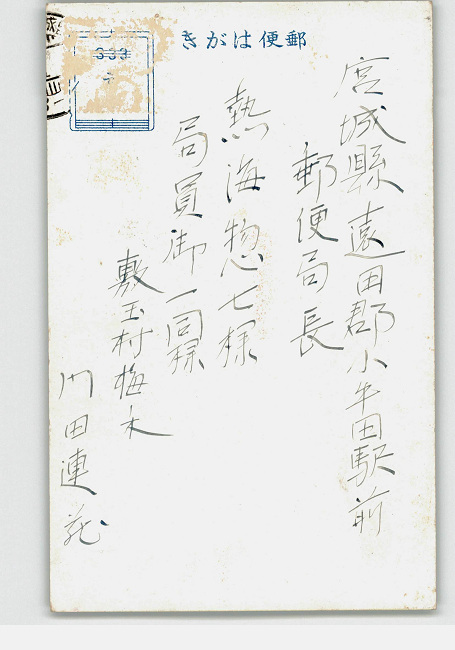 郵便はがき
宮城縣遠田郡小牛田駅前
郵便局長
熱海惣七様
局員御一同様
敷玉村梅木
門田連蔵